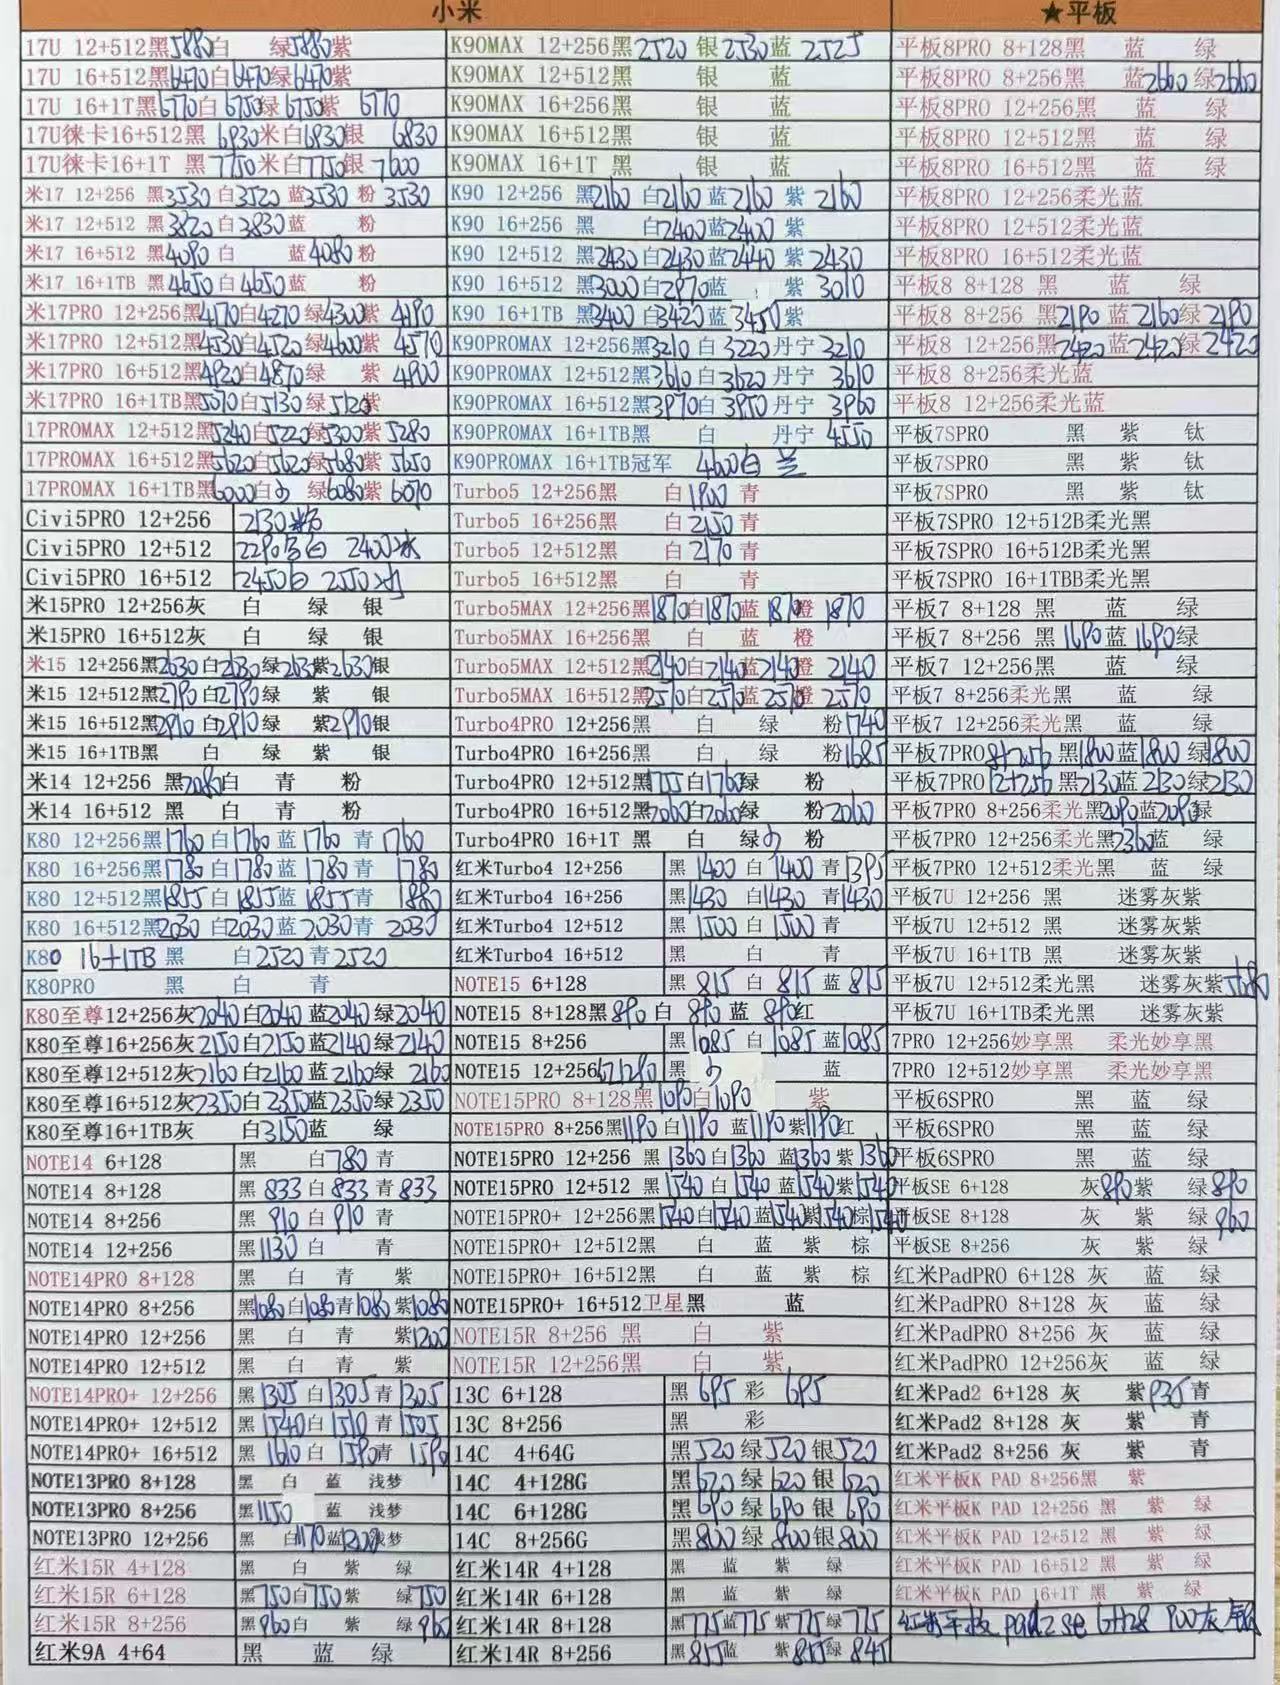 小米
17U 12+512黑5880白 绿5880紫
17U 16+512黑6470白6470绿6470紫
17U 16+1T黑6770白6750绿6750紫 6770
17U徕卡16+512黑 6930米白6830银 6830
17U徕卡16+1T 黑 7750米白7750银 7600
米17 12+256 黑3530白3520蓝3530 粉 3530
米17 12+512 黑3820白3830蓝 粉
米17 16+512 黑4090白 蓝4080粉
米17 16+1TB 黑4650白4650蓝 粉
米17PRO 12+256黑4170白4270绿4300紫 4190
米17PRO 12+512黑4530白4520绿4600紫 4570
米17PRO 16+512黑4920白4870绿 紫 4900
米17PRO 16+1TB黑5070白5130绿5120紫
17PROMAX 12+512黑5240白5220绿5300紫5280
17PROMAX 16+512黑5620白5620绿5680紫5650
17PROMAX 16+1TB黑6000白 绿6080紫6070
Civi5PRO 12+256 2130粉
Civi5PRO 12+512 2290白 2400冰
Civi5PRO 16+512 2450白 2550冰
米15PRO 12+256灰 白 绿 银
米15PRO 16+512灰 白 绿 银
米15 12+256黑2630白2630绿2630紫2630银
米15 12+512黑2790白2790绿 紫 银
米15 16+512黑2910白2910绿 紫2910银
米15 16+1TB黑 白 绿 紫 银
米14 12+256 黑2080白 青 粉
米14 16+512 黑 白 青 粉
K80 12+256黑1760白1760蓝1760青1760
K80 16+256黑1780白1780蓝1780青1780
K80 12+512黑1855白1855蓝1855青1880
K80 16+512黑2030白2030蓝2030青2030
K80 16+1TB 黑 白2520青2520
K80PRO 黑 白 青
K80至尊12+256灰2040白2040蓝2040绿2040
K80至尊16+256灰2150白2150蓝2140绿2140
K80至尊12+512灰2160白2160蓝2160绿2160
K80至尊16+512灰2350白2350蓝2350绿2350
K80至尊16+1TB灰 白3150蓝 绿
NOTE14 6+128 黑 白780青
NOTE14 8+128 黑833白833青833
NOTE14 8+256 黑910白910青
NOTE14 12+256 黑1130白 青
NOTE14PRO 8+128 黑 白 青 紫
NOTE14PRO 8+256 黑1080白1080青1080紫1080
NOTE14PRO 12+256 黑 白 青 紫1200
NOTE14PRO 12+512 黑 白 青 紫
NOTE14PRO+ 12+256 黑1305白1305青1305
NOTE14PRO+ 12+512 黑1540白1510青1505
NOTE14PRO+ 16+512 黑1610白1590青1590
NOTE13PRO 8+128 黑 白 蓝 浅梦
NOTE13PRO 8+256 黑1150 蓝 浅梦
NOTE13PRO 12+256 黑 白1170蓝1200浅梦
红米15R 4+128 黑 白 紫 绿
红米15R 6+128 黑750白750紫 绿750
红米15R 8+256 黑960白 紫 绿965
红米9A 4+64 黑 蓝 绿
K90MAX 12+256黑2520 银2530蓝 2525
K90MAX 12+512黑 银 蓝
K90MAX 16+256黑 银 蓝
K90MAX 16+512黑 银 蓝
K90MAX 16+1T 黑 银 蓝
K90 12+256 黑2160白2160蓝2160紫 2160
K90 16+256 黑 白2400蓝2400紫
K90 12+512 黑2430白2430蓝2440紫2430
K90 16+512 黑3000白2970蓝 紫 3010
K90 16+1TB 黑3400白3420蓝3450紫
K90PROMAX 12+256黑3210白3220丹宁 3210
K90PROMAX 12+512黑3610白3620丹宁 3610
K90PROMAX 16+512黑3970白3950丹宁 3960
K90PROMAX 16+1TB黑 白 丹宁 4550
K90PROMAX 16+1TB冠军 4600白 兰
Turbo5 12+256黑 白1900青
Turbo5 16+256黑 白2150青
Turbo5 12+512黑 白2170青
Turbo5 16+512黑 白 青
Turbo5MAX 12+256黑1870白1870蓝1870橙1870
Turbo5MAX 16+256黑 白 蓝 橙
Turbo5MAX 12+512黑2140白2140蓝2140橙2140
Turbo5MAX 16+512黑2510白2510蓝2510橙2570
Turbo4PRO 12+256黑 白 绿 粉1740
Turbo4PRO 16+256黑 白 绿 粉1685
Turbo4PRO 12+512黑1755白1760绿 粉
Turbo4PRO 16+512黑2060白2060绿 粉2060
Turbo4PRO 16+1T 黑 白 绿 粉
红米Turbo4 12+256 黑1400白1400青1395
红米Turbo4 16+256 黑1430白1430青1430
红米Turbo4 12+512 黑1500白1500青
红米Turbo4 16+512 黑 白 青
NOTE15 6+128 黑815白815蓝815
NOTE15 8+128黑890白 890蓝 890红
NOTE15 8+256 黑1085白1085蓝1085
NOTE15 12+256 1280黑 蓝
NOTE15PRO 8+128黑1090白1090 紫
NOTE15PRO 8+256黑1190白1190蓝1190紫1190红
NOTE15PRO 12+256 黑1360白1360蓝1360紫1360
NOTE15PRO 12+512 黑1540白1540蓝1540紫1540
NOTE15PRO+ 12+256黑1540白1540蓝1540紫1540棕1540
NOTE15PRO+ 12+512黑 白 蓝 紫 棕
NOTE15PRO+ 16+512黑 白 蓝 紫 棕
NOTE15PRO+ 16+512卫星黑 蓝
NOTE15R 8+256 黑 白 紫
NOTE15R 12+256黑 白 紫
13C 6+128 黑695彩 695
13C 8+256 黑 彩
14C 4+64G 黑520绿520银520
14C 4+128G 黑620绿620银620
14C 6+128G 黑690绿690银690
14C 8+256G 黑800绿800银800
红米14R 4+128 黑 蓝 紫 绿
红米14R 6+128 黑 蓝 紫 绿
红米14R 8+128 黑775蓝775紫775绿775
红米14R 8+256 黑855蓝 紫855绿845
★平板
平板8PRO 8+128黑 蓝 绿
平板8PRO 8+256黑 蓝2660绿2660
平板8PRO 12+256黑 蓝 绿
平板8PRO 12+512黑 蓝 绿
平板8PRO 16+512黑 蓝 绿
平板8PRO 12+256柔光蓝
平板8PRO 12+512柔光蓝
平板8PRO 16+512柔光蓝
平板8 8+128 黑 蓝 绿
平板8 8+256 黑2190蓝2160绿2190
平板8 12+256黑2420蓝2420绿2420
平板8 8+256柔光蓝
平板8 12+256柔光蓝
平板7SPRO 黑 紫 钛
平板7SPRO 黑 紫 钛
平板7SPRO 黑 紫 钛
平板7SPRO 12+512B柔光黑
平板7SPRO 16+512B柔光黑
平板7SPRO 16+1TBB柔光黑
平板7 8+128 黑 蓝 绿
平板7 8+256 黑1690蓝1690绿
平板7 12+256黑 蓝 绿
平板7 8+256柔光黑 蓝 绿
平板7 12+256柔光黑 蓝 绿
平板7PRO8+256 黑1800蓝1800绿1800
平板7PRO12+256黑2130蓝2130绿2130
平板7PRO 8+256柔光黑2090蓝2090绿
平板7PRO 12+256柔光黑2360蓝 绿
平板7PRO 12+512柔光黑 蓝 绿
平板7U 12+256 黑 迷雾灰紫
平板7U 12+512 黑 迷雾灰紫
平板7U 16+1TB 黑 迷雾灰紫
平板7U 12+512柔光黑 迷雾灰紫5680
平板7U 16+1TB柔光黑 迷雾灰紫
7PRO 12+256妙享黑 柔光妙享黑
7PRO 12+512妙享黑 柔光妙享黑
平板6SPRO 黑 蓝 绿
平板6SPRO 黑 蓝 绿
平板6SPRO 黑 蓝 绿
平板SE 6+128 灰890紫 绿890
平板SE 8+128 灰 紫 绿960
平板SE 8+256 灰 紫 绿
红米PadPRO 6+128 灰 蓝 绿
红米PadPRO 8+128 灰 蓝 绿
红米PadPRO 8+256 灰 蓝 绿
红米PadPRO 12+256灰 蓝 绿
红米Pad2 6+128 灰 紫935青
红米Pad2 8+128 灰 紫 青
红米Pad2 8+256 灰 紫 青
红米平板K PAD 8+256黑 紫
红米平板K PAD 12+256 黑 紫 绿
红米平板K PAD 12+512 黑 紫 绿
红米平板K PAD 16+512 黑 紫 绿
红米平板K PAD 16+1T 黑 紫 绿
红米平板 Pad2 se 6+128 900灰 银